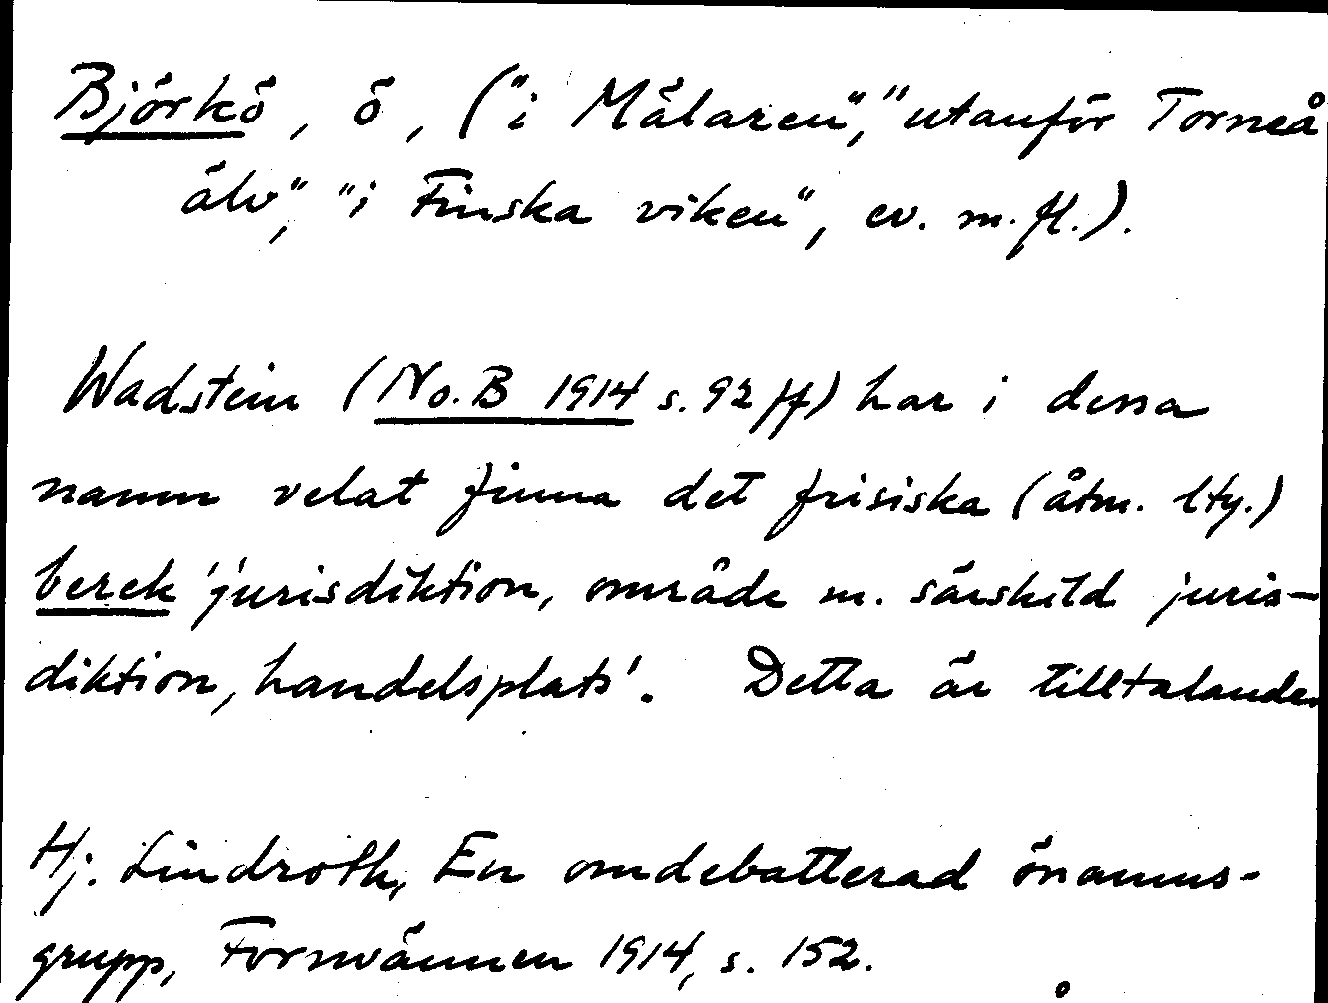 Björkö, ö, ("i Mälaren", "utanför Torneå
älv", "i Finska viken", ev. m. fl.).
Wadstein (No.B 1914 s. 92 ff) har i dessa
namn velat finna det frisiska (åtm. lty.)
berek 'jurisdiktion, område m. särskild juris-
diktion, handelsplats'. Detta är tilltalande.
Hj. Lindroth, En omdebatterad önamns-
grupp, Fornvännen 1914, s. 152.